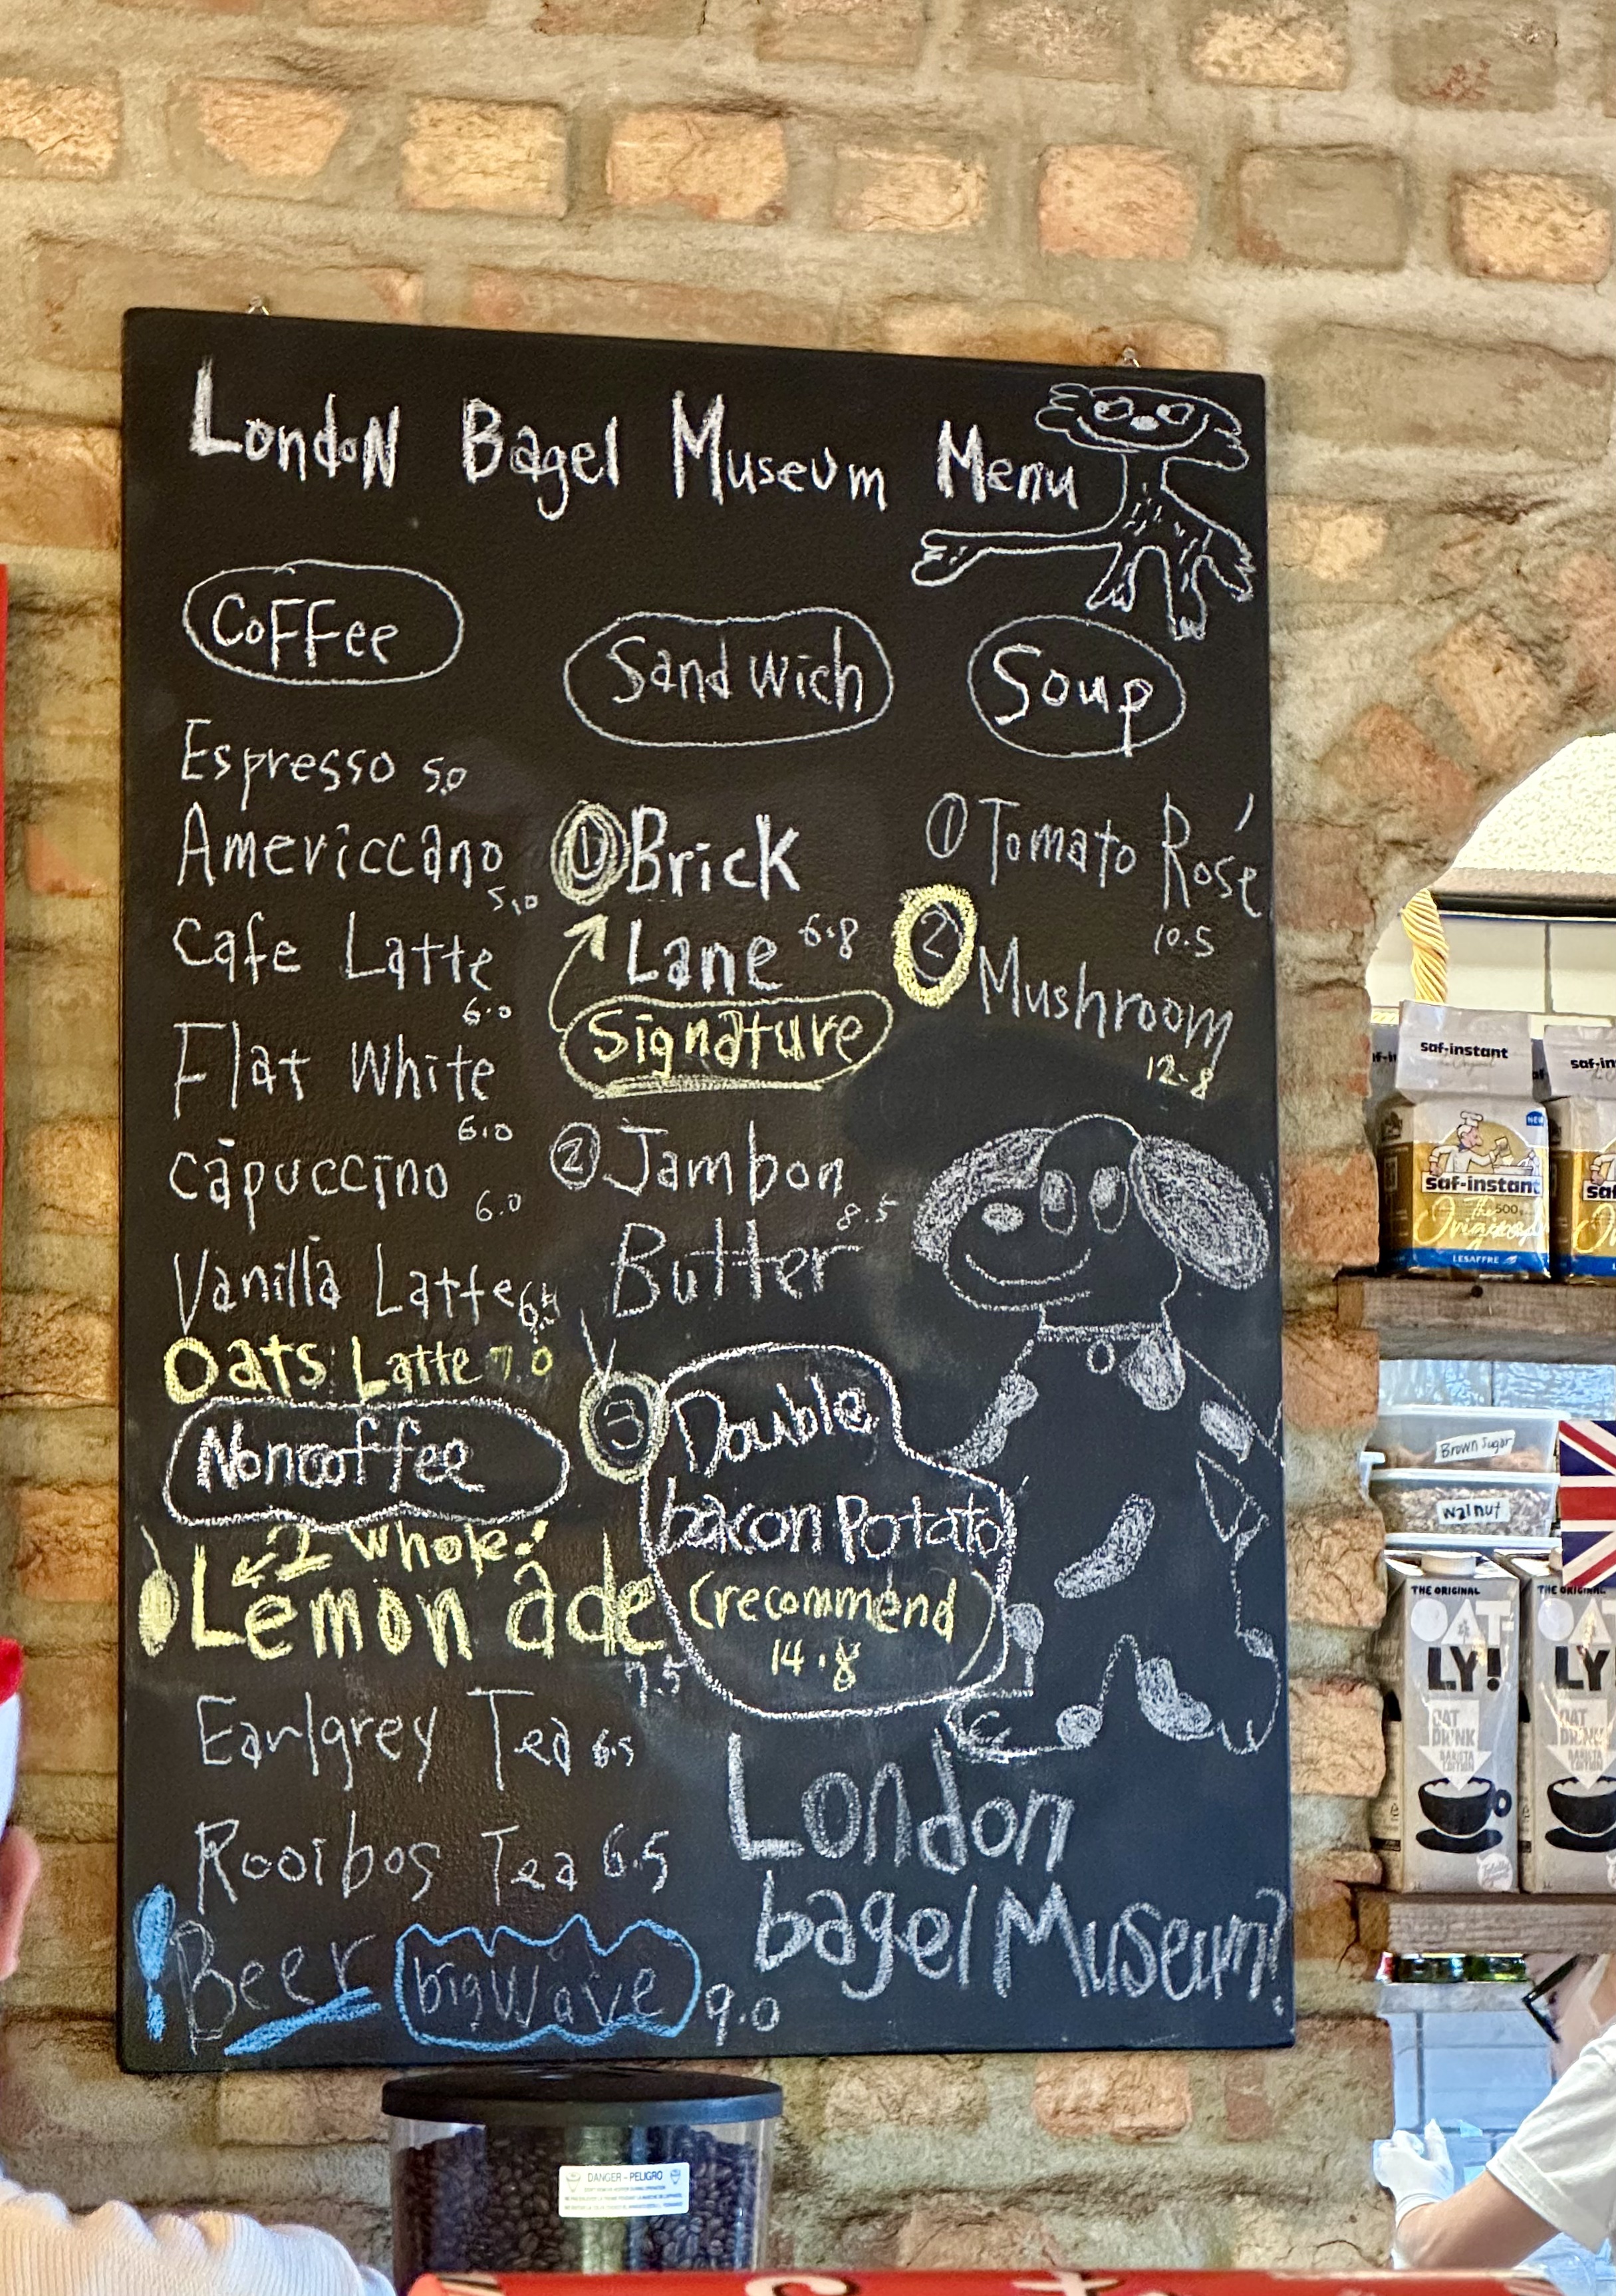 LondoN Bagel Museum Menu
CoFFee
Espresso 5.0
Americcano
5.0
Cafe Latte
6.0
Flat White
6.0
capuccino
6.0
Vanilla Latte 6.5
Oats Latte 7.0
Noncoffee
2 whole!
Lemon ade
7.5
Earlgrey Tea 6.5
Rooibos Tea 6.5
Beer bigWave 9.0
Sandwich
① Brick
Lane 6.8
Signature
② Jambon
8.5
Butter
③ Double
bacon Potato
(recommend
14.8
Soup
① Tomato Rosé
10.5
② Mushroom
12.8
London
bagel Museum?
saf-instant
saf-instant
The Original
500
LESAFFRE
NEW
Brown Sugar
walnut
THE ORIGINAL
OAT-
LY!
OAT
DRINK
BARISTA
EDITION
THE ORIGINAL
OAT
LY!
OAT
DRINK
BARISTA
EDITION
DANGER - PELIGRO